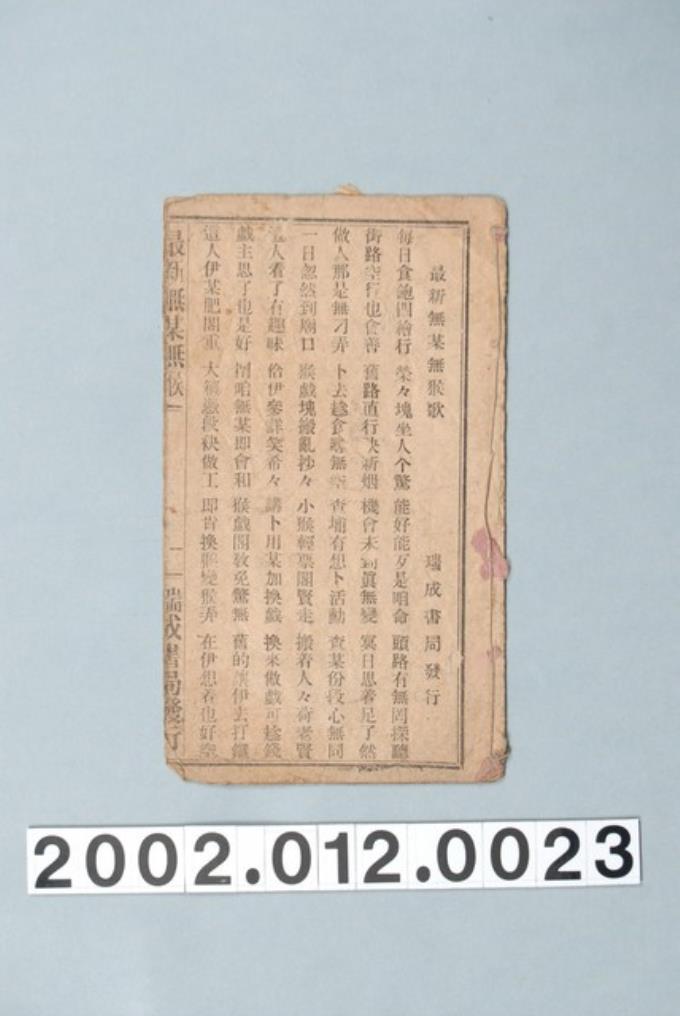 最新無某無猴歌
瑞成書局發行
每日食飽四繪行 榮々塊坐人个驚 能好能歹是咱命 頭路有無罔探聽
街路空行也會善 舊路直行決新烟 機會未到眞無變 冥日思着足了然
做人那是無刁弄 卜去趁食嘐無空 查埔有想卜活動 查某份段心無同
一日忽然到廟口 猴戲塊搬亂抄々 小猴輕票閣賢走 搬着人々荷老賢
人看了有趣味 佮伊參詳笑希々 講卜用某加換戲 換來做戲可趁錢
戲主思了也是好 咱無某即會和 猴戲閣敎免驚無 舊的讓伊去打鐵
這人伊某肥閣重 大穎激段袂做工 即肯換猴變猴弄 在伊想着也好空
最新無某無猴
一
瑞成書局發行
2002.012.0023